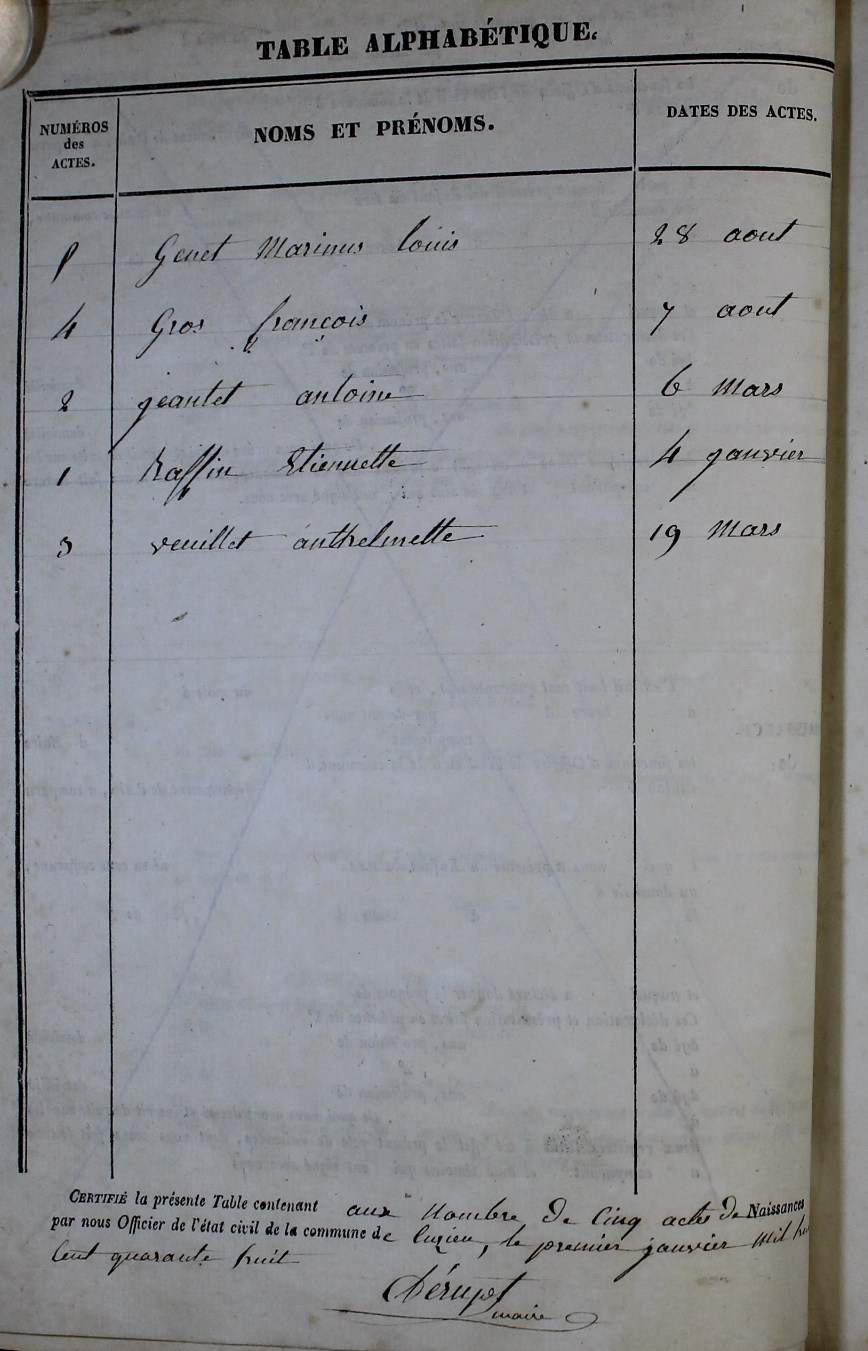 TABLE ALPHABÉTIQUE.
NUMÉROS des ACTES. NOMS ET PRÉNOMS. DATES DES ACTES.
5 Genet Marinus louis 28 aout
4 Gros françois 7 aout
2 jeantet antoine 6 Mars
1 Raffin Etiennette 4 janvier
3 veuillet anthelmette 19 Mars
CERTIFIÉ la présente Table contenant aux Nombre de Cinq actes de Naissances
par nous Officier de l'état civil de la commune de luzieu, le premier janvier Mil hui
Cent quarante huit
maire